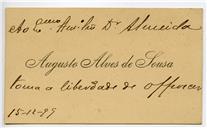 Ao Exmo Amilio Dr Almeida
Augusto Alves de Sousa
toma a liberdade de offerecer
15-12-99